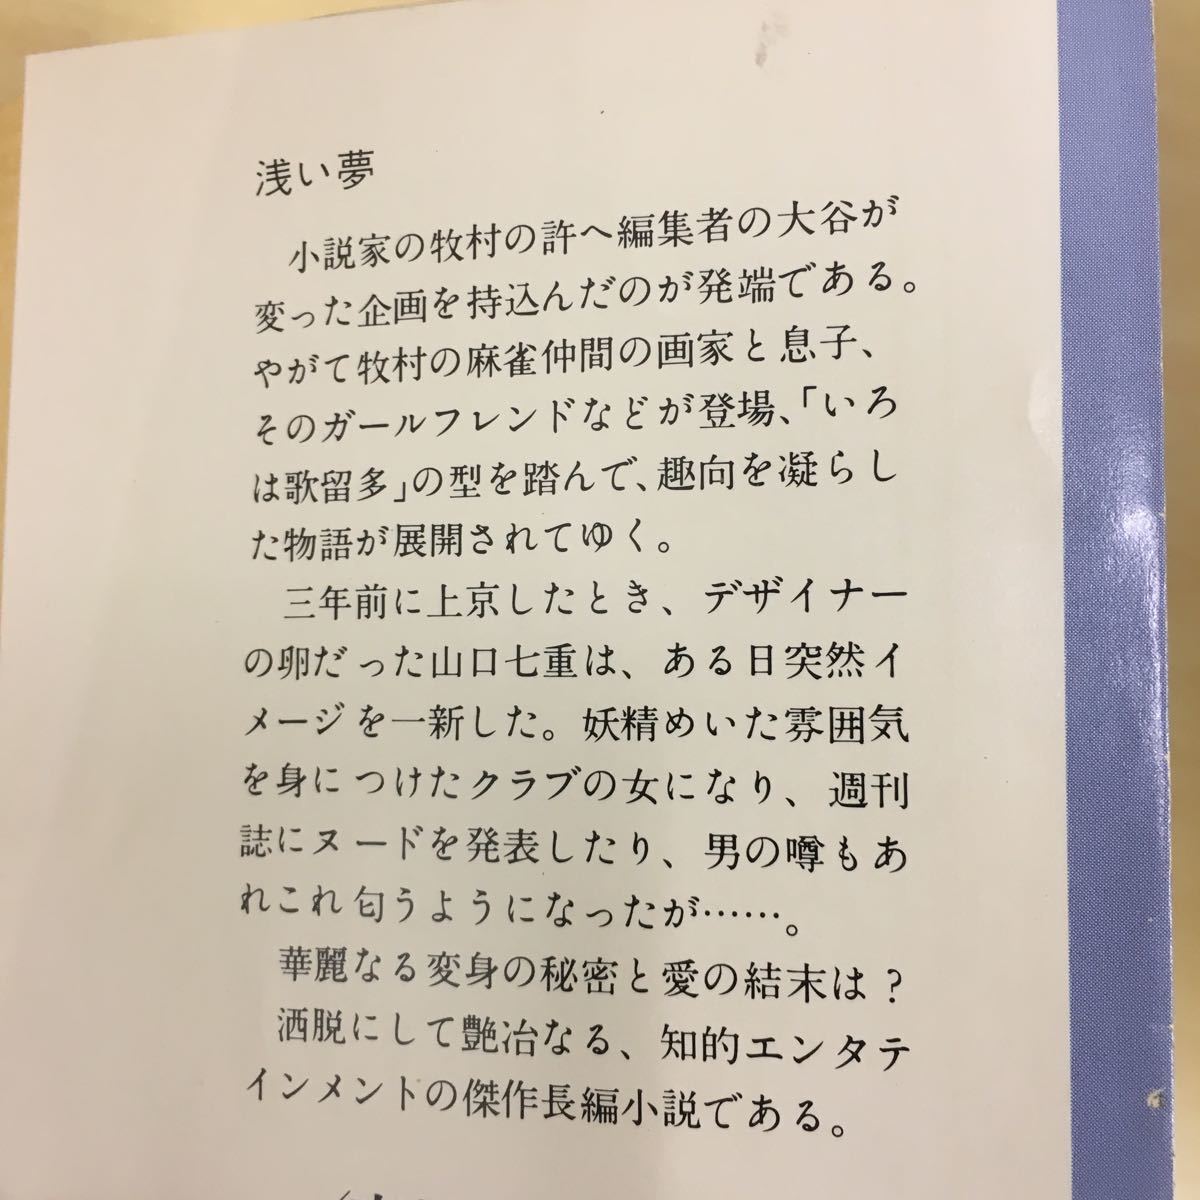 浅い夢
小説家の牧村の許へ編集者の大谷が
変った企画を持込んだのが発端である。
やがて牧村の麻雀仲間の画家と息子、
そのガールフレンドなどが登場、「いろ
は歌留多」の型を踏んで、趣向を凝らし
た物語が展開されてゆく。
三年前に上京したとき、デザイナー
の卵だった山口七重は、ある日突然イ
メージを一新した。妖精めいた雰囲気
を身につけたクラブの女になり、週刊
誌にヌードを発表したり、男の噂もあ
れこれ匂うようになったが……。
華麗なる変身の秘密と愛の結末は？
洒脱にして艶冶なる、知的エンタテ
インメントの傑作長編小説である。